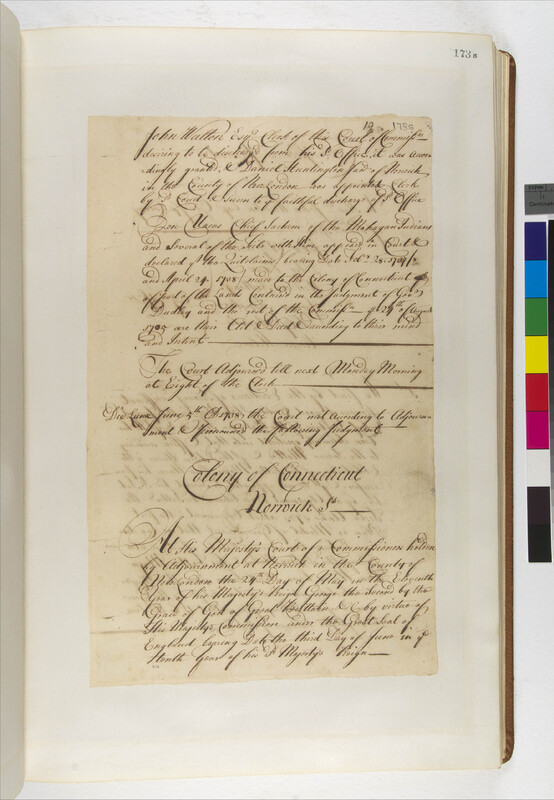 173 B
12 1738
John Walton Esqr. Clerk of this Court of Commissrs
desiring to be dismissed from his sd. Office, it was accor
dingly granted, & Daniel Huntington Junr of Norwich
in the County of New London was appointed Clerk
by sd Court & Sworn to ye faithful discharge of sd Office
Ben Uncas Chief Sachem of the Mohegan Indians
and Several of the tribe with Him appeared in Court &
declared yt the Quitclaims bearing Date
and April 24. 1738 made to the Colony of Connecticut
of part of the Lands Contained in the Judgment of Govr
Dudley and the rest of the Commissrs 24th of August
1705 are their Act & Deed according to their mind
and Intent
The Court Adjourned till next Munday Morning
at Eight of the Clock
Die Lunæ June 5th AD. 1738, the Court met According to Adjourn
ment & Pronounced the following Judgment
Colony of Connecticut
Norwich Ss
At His Majesty's Court of Commissioners holden
by Adjournment at Norwich in the County of
New London the 24th Day of May in the Eleventh
Year of his Majesty's Reign George the Second by the
Grace of God of Great Brittain &c by virtue of
His Majesty's Commission under the Great Seal of
England bearing Date the third Day of June in ye
Tenth Year of his sd Majesty's Reign